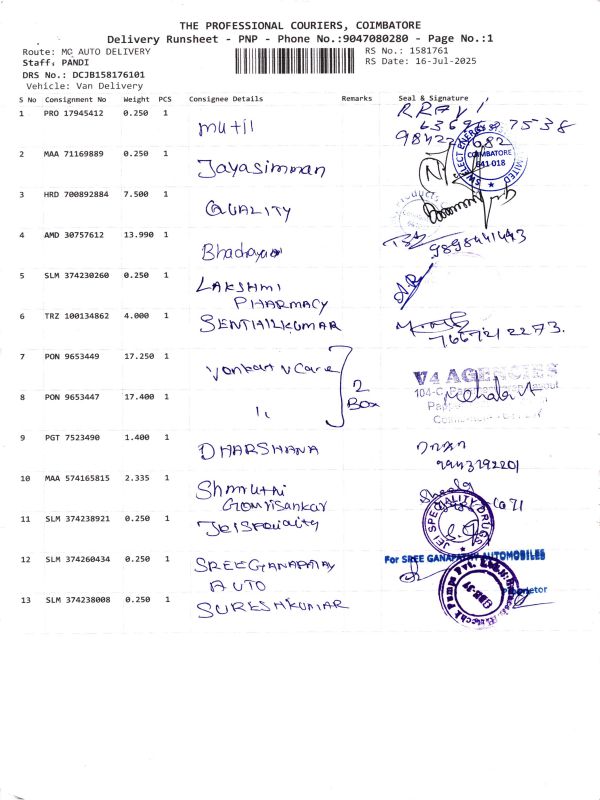 THE PROFESSIONAL COURIERS, COIMBATORE
Delivery Runsheet - PNP - Phone No.:9047080280 - Page No.:1
Route: MC AUTO DELIVERY RS No.: 1581761
Staff: PANDI RS Date: 16-Jul-2025
DRS No.: DCJB158176101
Vehicle: Van Delivery
S No Consignment No Weight PCS Consignee Details Remarks Seal & Signature
1 PRO 17945412 0.250 1 mutil
2 MAA 71169889 0.250 1 Jayasimman
COIMBATORE
641 018
3 HRD 700892884 7.500 1 QUALITY
4 AMD 30757612 13.990 1 9898441443
5 SLM 374230260 0.250 1 LAKSHMI
PHARMACY
6 TRZ 100134862 4.000 1 SENTHILKUMAR 7667212273.
7 PON 9653449 17.250 1 Vcare 2 Box
V4 AGENCIES
8 PON 9653447 17.400 1 11
9 PGT 7523490 1.400 1 DHARSHANA
2943292201
10 MAA 574165815 2.335 1 Shmruthi
Gowrisankar
11 SLM 374238921 0.250 1 JEISPeciality
JEI SPECIALITY DRUGS
12 SLM 374260434 0.250 1 SREEGANAPATAY
AUTO
For SREE GANAPATHY AUTOMOBILES
Proprietor
13 SLM 374238008 0.250 1 SURESHKUMAR